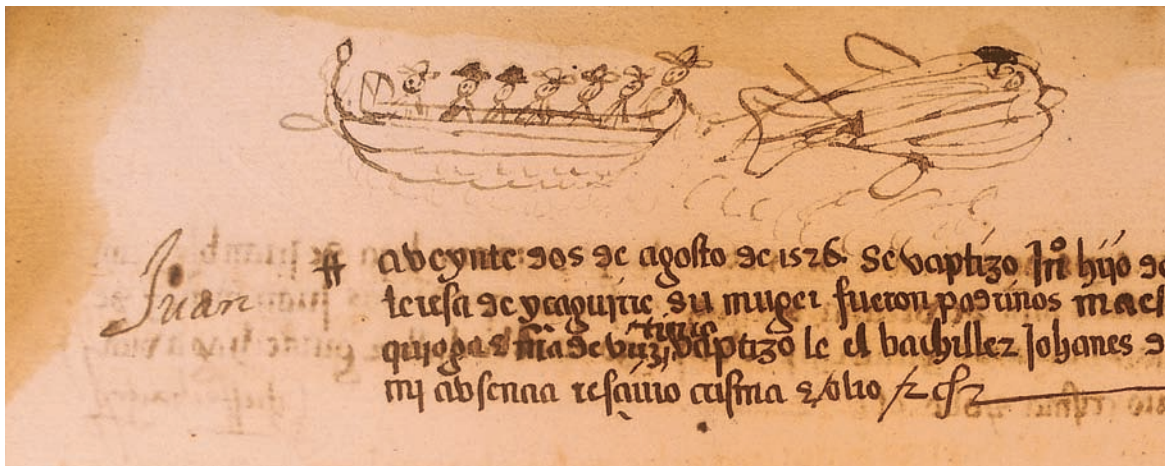 Juan
a veynte dos de agosto de 1526. Se vaptizo Jn̊ hijo de
teresa de ycaguirre su muger fueron padrinos maes
quiroga vaptizo le el bachiller Johanes d
mi absencia resciuio crisma & olio